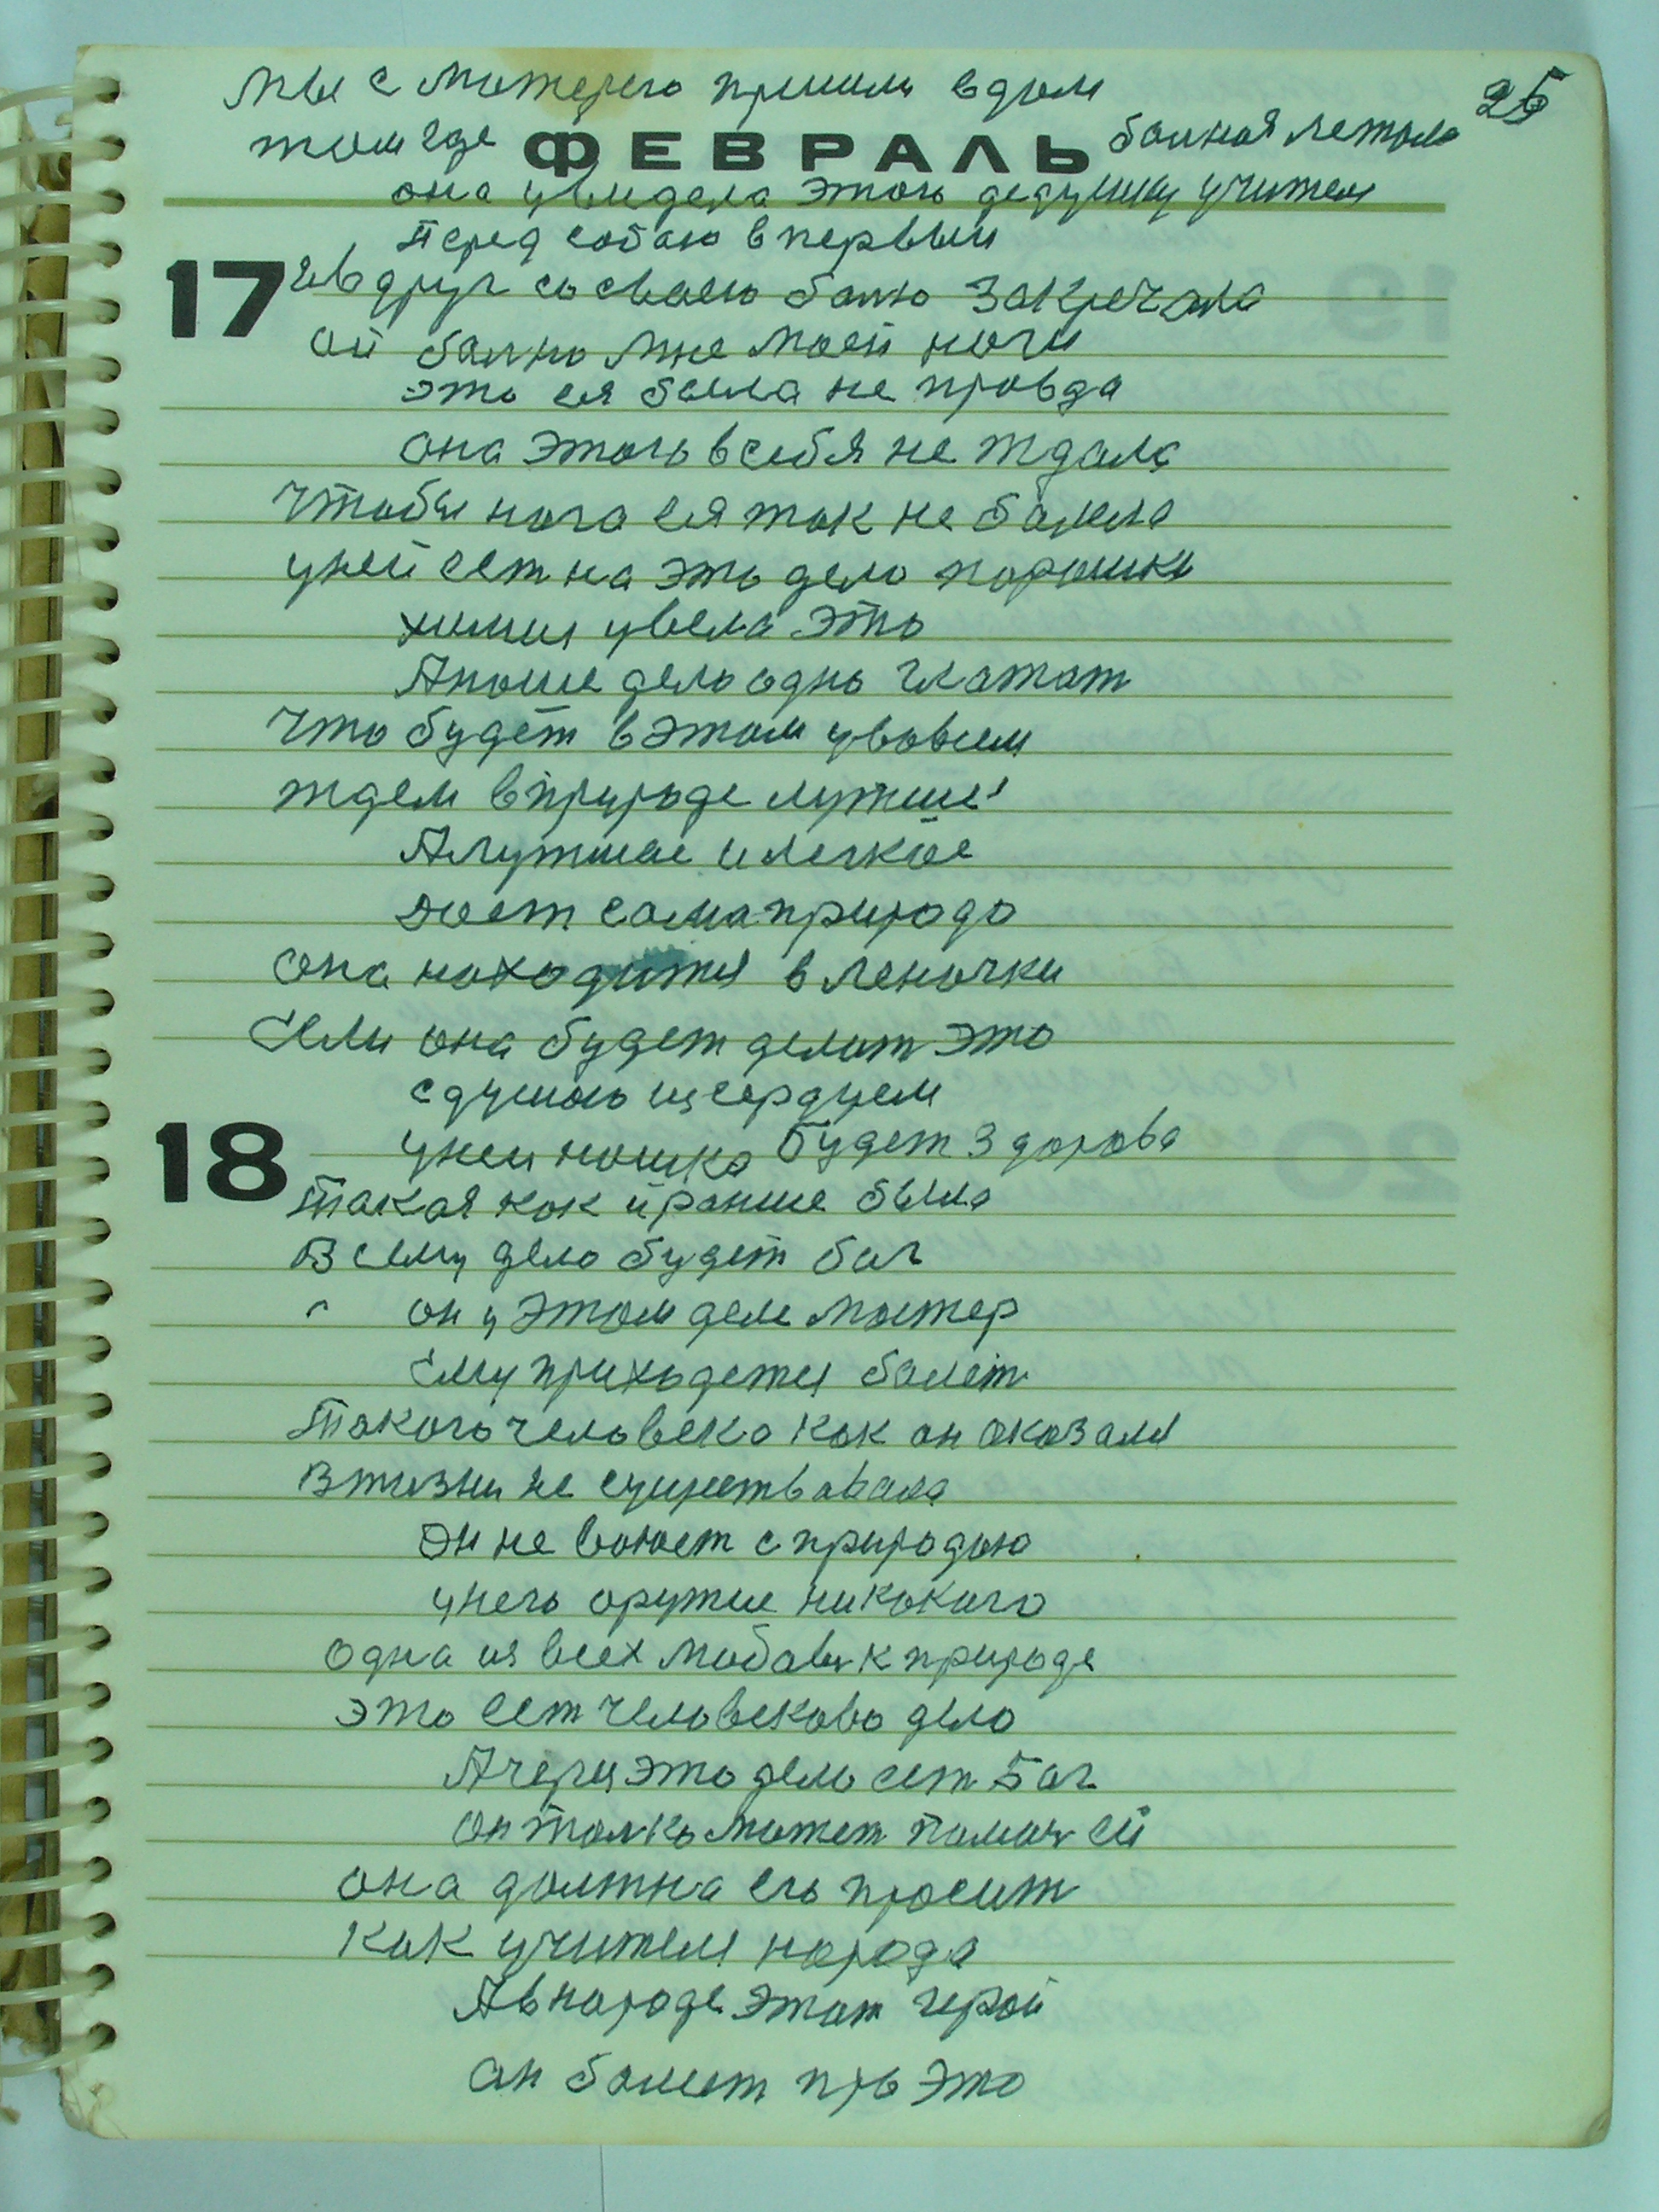 25
мы с матерею пришли в дом
там где ФЕВРАЛЬ болная лежала
она увидела этого дедушку учителя
перед собаю впервыи
17 и вдруг со своею болю закречала
ой болно мне моей ноги
это ея была не правда
она этого в себя не ждала
чтобы нога ея так не балела
у ней ест на это дело порошки
химия увела это
А наше дело одно
что будет в этом
ждем в природе лутшие
А лутшае и легкое
дает сама природа
она находится в Леночки
Если она будет делат это
с душою и сердцем
18 у неи ношка будет здорова
такая как и ранше была
Всему дело будет бог
он у этом деле мастер
Ему приходется балет
Такого человека как он оказался
В жизни не существавала
Он не воюет с природою
у него оружие никокого
одна из всех любовь к природе
это ест человеково дело
А через это дело ест Бог
он толко может памочь ей
она должна его просит
как учителя народа
А в народе этот герой
он болеет про это